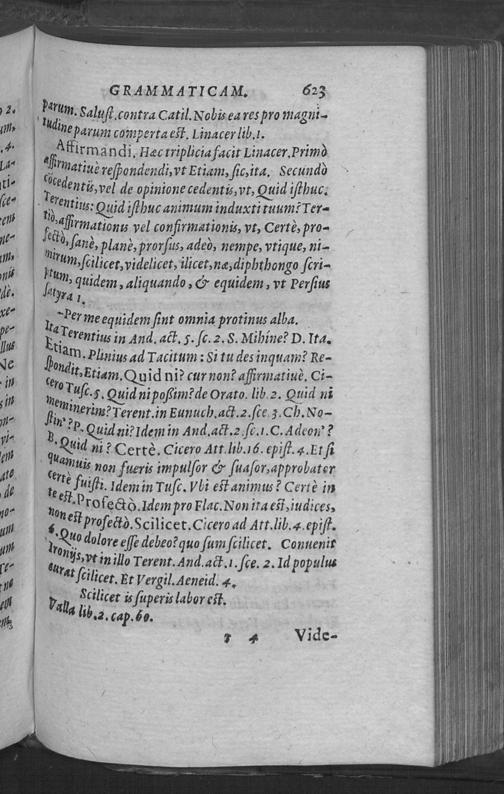 GRAMMATICAM. 623
parum. Salust. contra Catil. Nobis ea res pro magni-
tudine parum comperta est. Linacer lib. 1.
Affirmandi. Hæc triplicia facit Linacer. Primò
affirmatiuè respondendi, vt Etiam, sic, ita. Secundò
cōcedentis, vel de opinione cedentis, vt, Quid isthuc.
Terentius: Quid isthuc animum induxti tuum? Ter-
tiò, affirmationis vel confirmationis, vt, Certè, pro-
fectò, sanè, planè, prorsus, adeò, nempe, vtique, ni-
mirum, scilicet, videlicet, ilicet, næ, diphthongo scri-
ptum, quidem, aliquando, & equidem, vt Persius
satyra 1.
-Per me equidem sint omnia protinus alba.
Ita Terentius in And. act. 5. sc. 2. S. Mihine? D. Ita.
Etiam. Plinius ad Tacitum: Si tu des inquam? Re-
spondit, Etiam. Quid ni? cur non? affirmatiuè. Ci-
cero Tusc. 5. Quid ni possim? de Orato. lib. 2. Quid ni
meminerim? Terent. in Eunuch. act. 2. sce 3. Ch. No-
stin'? P. Quid ni? Idem in And. act. 2. sc. 1. C. Adeon'?
B. Quid ni? Certè. Cicero Att. lib. 16. epist. 4. Et si
quamuis non fueris impulsor & suasor, approbator
certè fuisti. Idem in Tusc. Vbi est animus? Certè in
te est. Profectò. Idem pro Flac. Non ita est, iudices,
non est profectò. Scilicet. Cicero ad Att. lib. 4. epist.
6. Quo dolore esse debeo? quo sum scilicet. Conuenit
Ironijs, vt in illo Terent. And. act. 1. sce. 2. Id populus
curat scilicet. Et Vergil. Aeneid. 4.
Scilicet is superis labor est.
Valla lib. 2. cap. 60.
4 Vide-